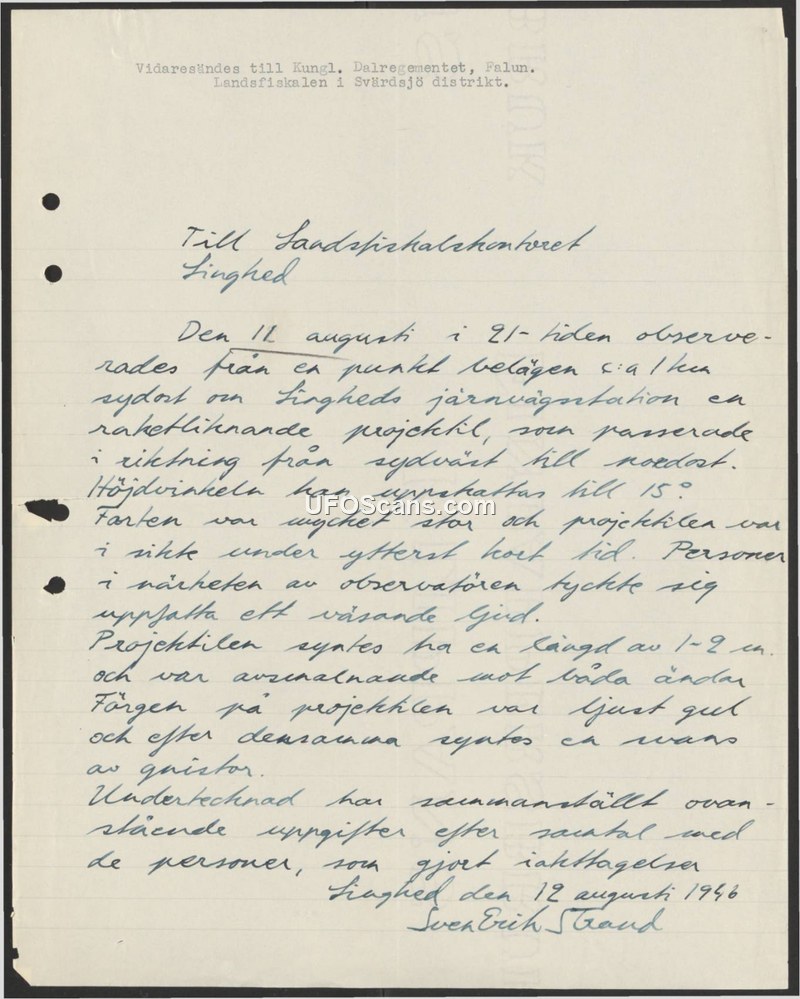 Vidaresändes till Kungl. Dalregementet, Falun.
Landsfiskalen i Svärdsjö distrikt.
Till Landsfiskalskontoret
Linghed
Den 11 augusti i 21-tiden observe-
rades från en punkt belägen c:a 1 km
sydost om Lingheds järnvägsstation en
raketliknande projektil, som passerade
i riktning från sydväst till nordost.
Höjdvinkeln kan uppskattas till 15°.
UFOScans.com
Farten var mycket stor och projektilen var
i sikte under ytterst kort tid. Personer
i närheten av observatören tyckte sig
uppfatta ett väsande ljud.
Projektilen syntes ha en längd av 1-2 m.
och var avsmalnande mot båda ändar
Färgen på projektilen var ljust gul
och efter densamma syntes en svans
av gnistor.
Undertecknad har sammanställt ovan-
stående uppgifter efter samtal med
de personer, som gjort iakttagelser
Linghed den 12 augusti 1946
Sven Erik Strand